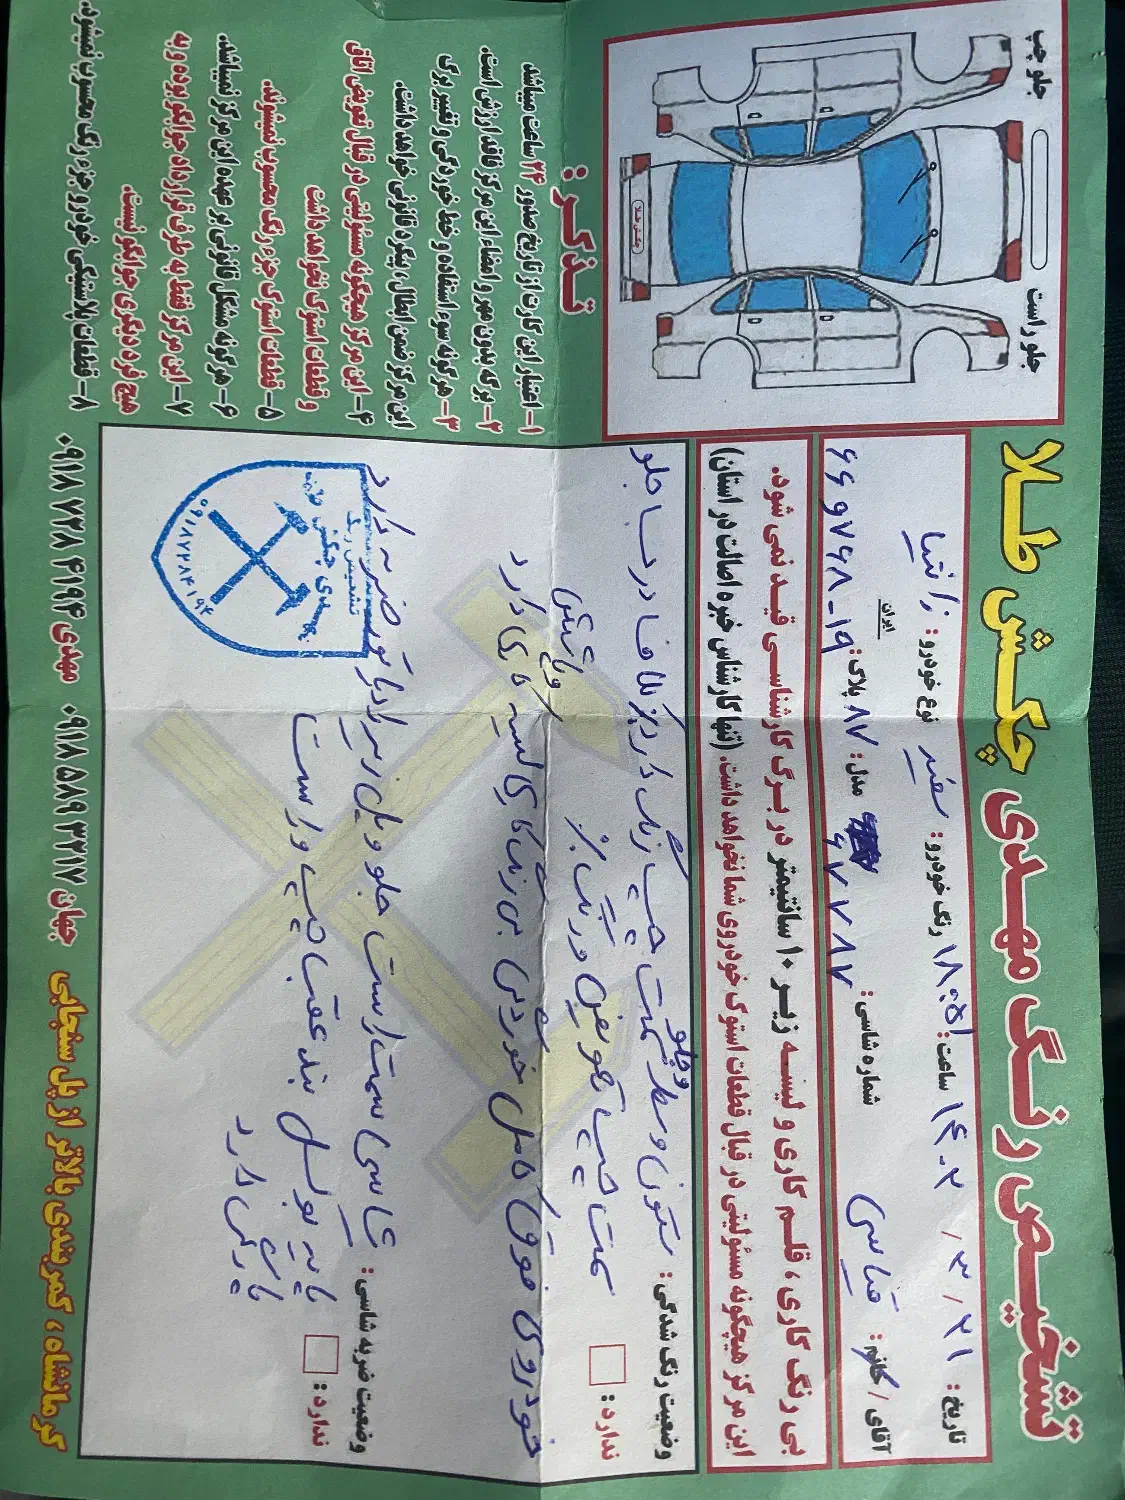 تشخیص رنگ مهدی چکش طلا
تاریخ: ۱۴۰۲/۳/۲۱ ساعت: ۱۸:۵۱ رنگ خودرو: سفید نوع خودرو: زانتیا
آقای / خانم: شماره شاسی: ۶۷۷۸۷ مدل: ۸۷ پلاک: ایران ۱۹-
بی رنگ کاری، قلم کاری و لیسه زیر ۱۰ سانتیمتر در برگ کارشناسی قید نمی شود.
این مرکز هیچگونه مسئولیتی در قبال قطعات استوک خودروی شما نخواهد داشت. (تنها کارشناس خبره اصالت در استان)
وضعیت رنگ شدگی: ستون وسط سمت چپ رنگ دارد گلگیر جلو
و جلو
ندارد: سمت چپ تعویض و رنگ
خودروی فوق کامل خوردگی بی رنگ کاری لیسه دارد
وضعیت ضربه شاسی: شاسی سمت راست جلو ضربه دارد
ندارد:
عقب چپ و راست
دارد
تشخیص رنگ
مهدی چکش طلا
۰۹۱۸۷۲۸۴۱۹۴
جلو چپ
جلو راست
چکش طلا
تذکر:
۱- اعتبار این کارت از تاریخ صدور ۲۴ ساعت میباشد
۲- برگه بدون مهر و امضاء این مرکز فاقد ارزش است.
۳- هرگونه سوء استفاده و خط خوردگی و تغییر برگ
این مرکز ضمن ابطال، پیگرد قانونی خواهد داشت.
۴- این مرکز هیچگونه مسئولیتی در قبال تعویض اتاق
و قطعات استوک نخواهد داشت
۵- قطعات استوک جزء رنگ محسوب نمیشوند.
۶- هرگونه مشکل قانونی بر عهده این مرکز نمیباشد.
۷- این مرکز فقط به طرف قرارداد جوابگو بوده و به
هیچ فرد دیگری جوابگو نیست.
۸- قطعات پلاستیکی خودرو جزء رنگ محسوب نمیشود.
کرمانشاه، کمربندی بالاتر از پل سنجابی جهان ۰۹۱۸ ۵۸۹ ۳۲۱۷ مهدی ۰۹۱۸ ۷۲۸ ۴۱۹۴